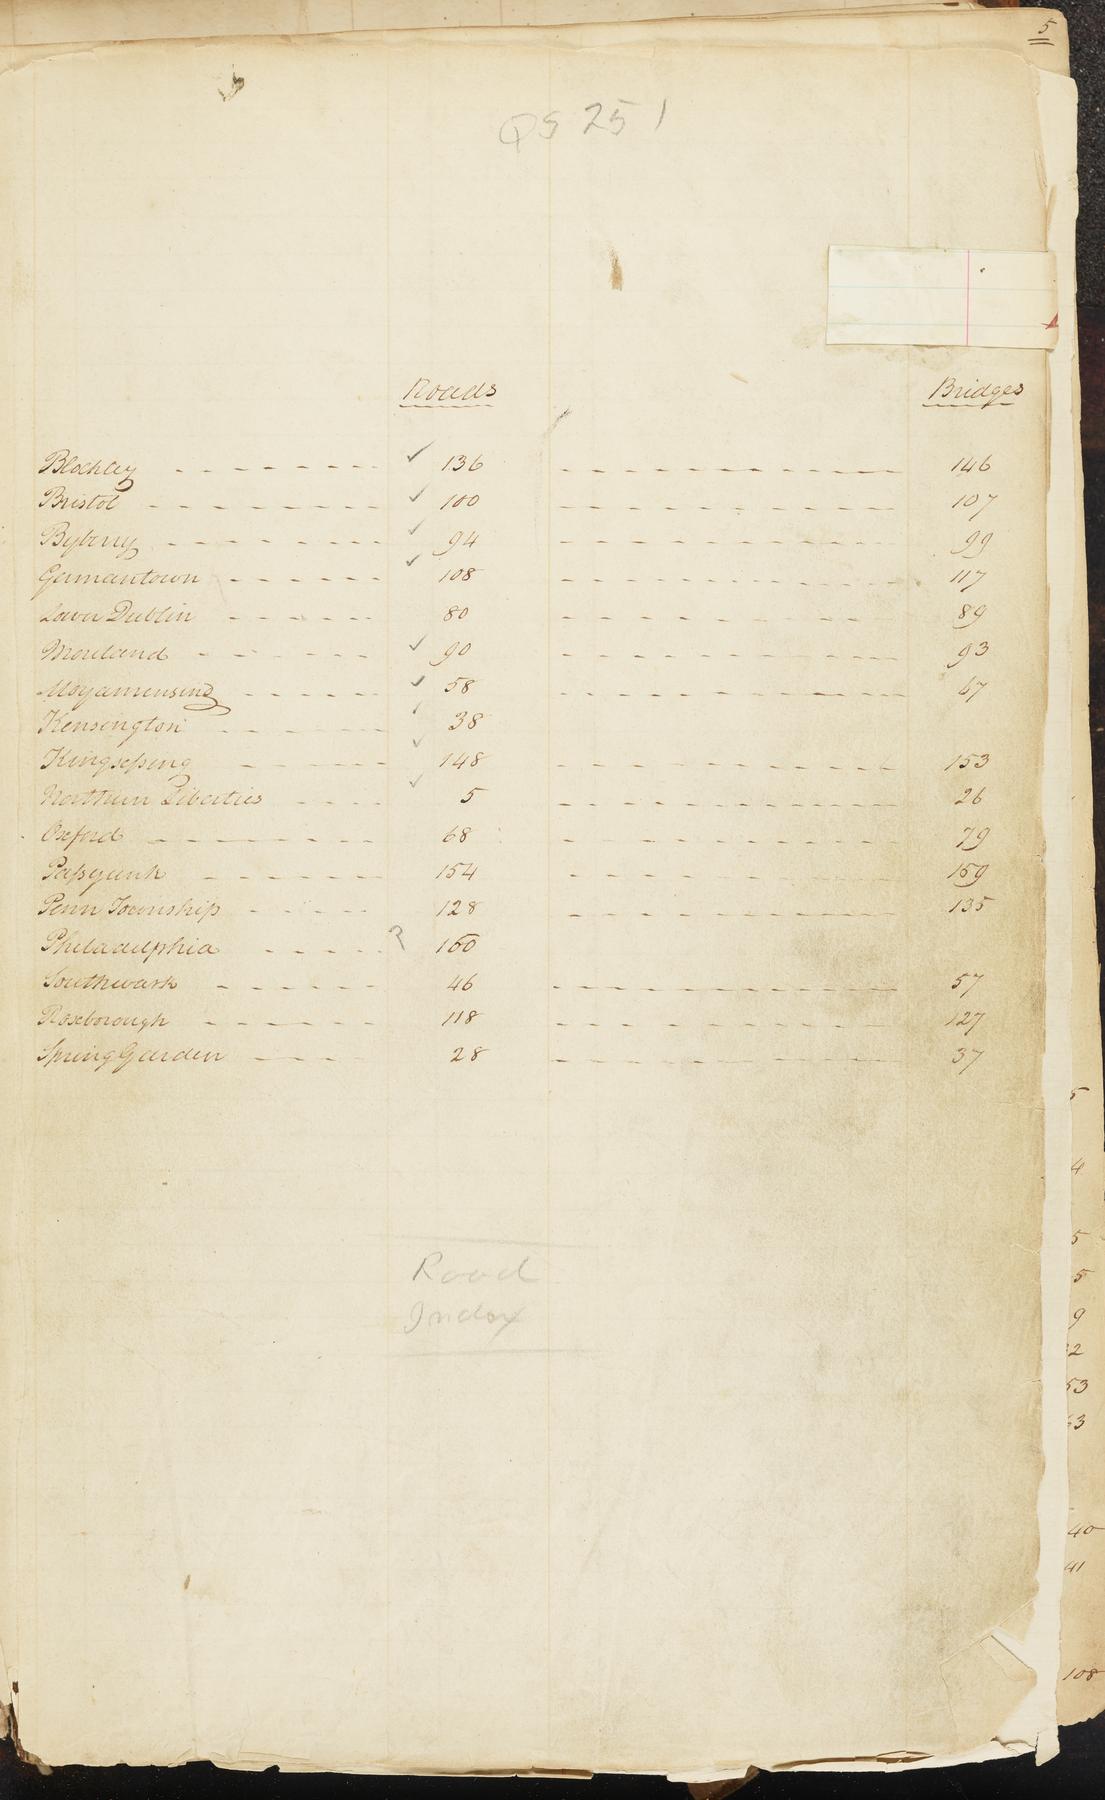 5
QS 251
Roads Bridges
Blockley - - - - - - - ✓ 136 - - - - - - - - - - - 146
Bristol - - - - - - - - ✓ 100 - - - - - - - - - - - 107
Byberry - - - - - - - ✓ 94 - - - - - - - - - - - 99
Germantown - - - - - ✓ 108 - - - - - - - - - - - 117
Lower Dublin - - - - - 80 - - - - - - - - - - - 89
Moreland - - - - - - ✓ 90 - - - - - - - - - - - 93
Moyamensing - - - - - ✓ 58 - - - - - - - - - - - 67
Kensington - - - - - - ✓ 38
Kingsessing - - - - - ✓ 148 - - - - - - - - - - - 153
Northern Liberties - - - - ✓ 5 - - - - - - - - - - - 26
Oxford - - - - - - - 68 - - - - - - - - - - - 79
Passyunk - - - - - - 154 - - - - - - - - - - - 159
Penn Township - - - - - 128 - - - - - - - - - - - 135
Philadelphia - - - - - ? 160
Southwark - - - - - - 46 - - - - - - - - - - - 57
Roxborough - - - - - - 118 - - - - - - - - - - - 127
Spring Garden - - - - 28 - - - - - - - - - - - 37
Road
Index
5
4
5
5
9
2
53
63
40
41
108